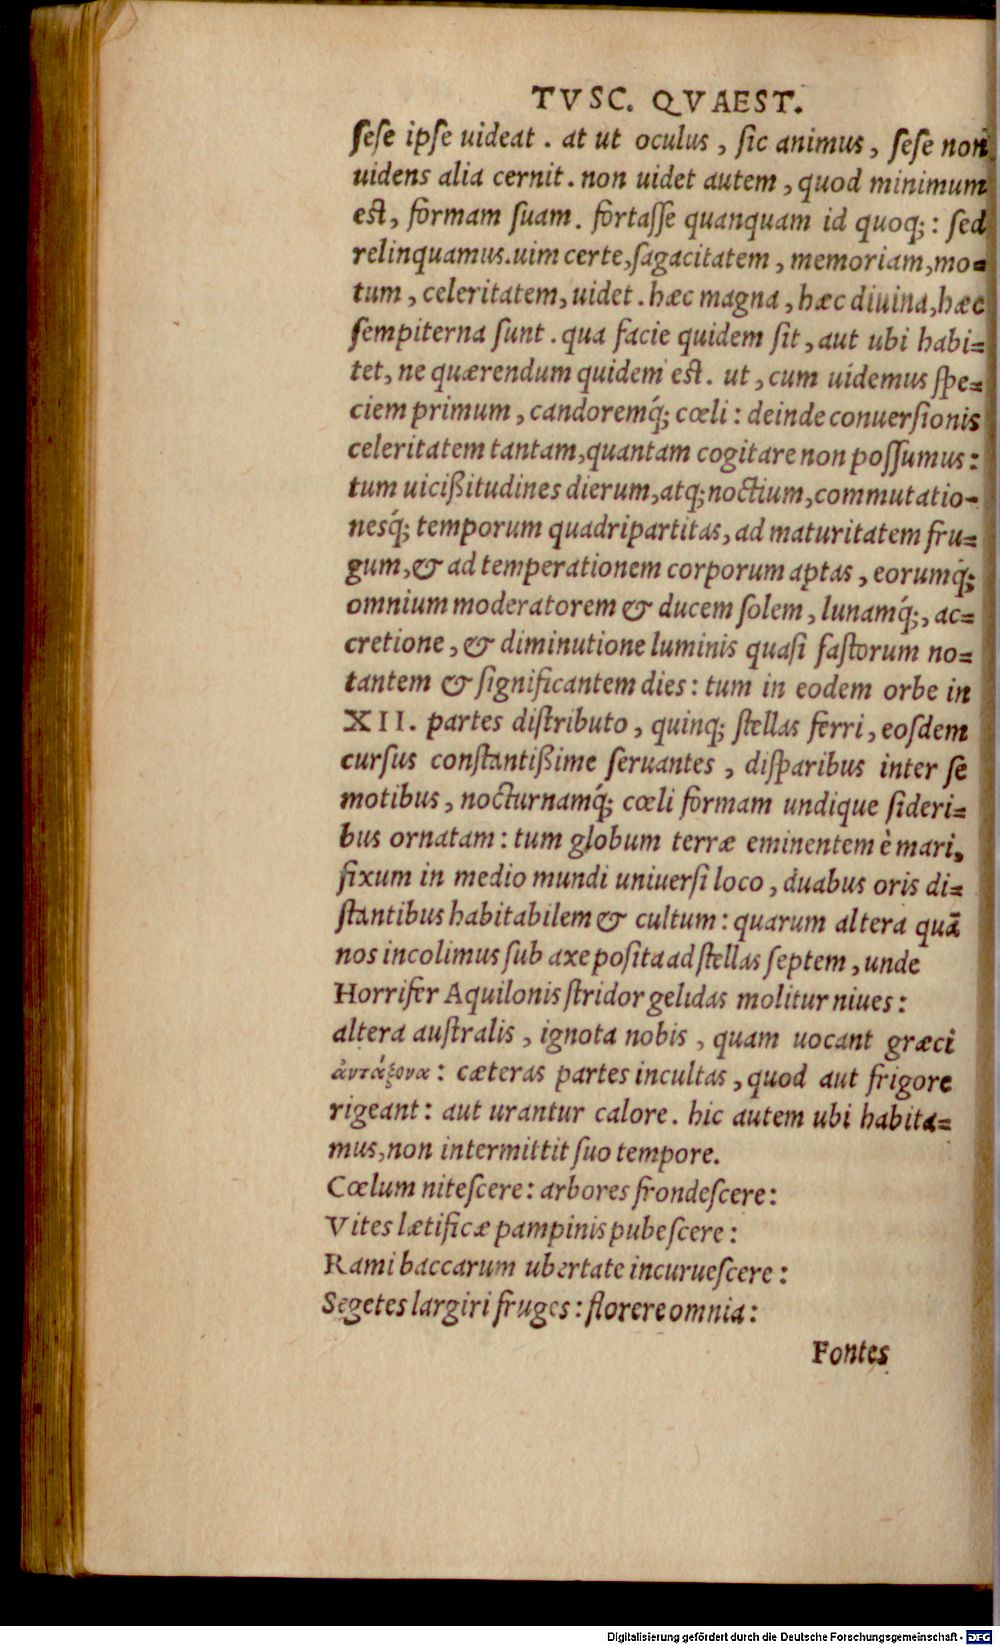 TVSC. QVAEST.
ſeſe ipſe uideat . at ut oculus , ſic animus , ſeſe non
uidens alia cernit . non uidet autem , quod minimum
eſt, formam ſuam . fortaſſe quanquam id quoq; : ſed
relinquamus.uim certe,ſagacitatem , memoriam,mo=
tum , celeritatem, uidet . hæc magna , hæc diuina,hæc
ſempiterna ſunt . qua facie quidem ſit , aut ubi habi=
tet, ne quærendum quidem eſt . ut , cum uidemus ſpe=
ciem primum , candoremq́; cœli : deinde conuerſionis
celeritatem tantam,quantam cogitare non poſſumus :
tum uicißitudines dierum,atq; noctium,commutatio-
nesq́; temporum quadripartitas, ad maturitatem fru=
gum,& ad temperationem corporum aptas , eorumq́;
omnium moderatorem & ducem ſolem , lunamq́;, ac=
cretione , & diminutione luminis quaſi faſtorum no=
tantem & ſignificantem dies : tum in eodem orbe in
XII. partes diſtributo , quinq; ſtellas ferri , eoſdem
curſus conſtantißime ſeruantes , diſparibus inter ſe
motibus , nocturnamq́; cœli formam undique ſideri=
bus ornatam : tum globum terræ eminentem è mari,
fixum in medio mundi uniuerſi loco , duabus oris di=
ſtantibus habitabilem & cultum : quarum altera quā
nos incolimus ſub axe poſita ad ſtellas ſeptem , unde
Horrifer Aquilonis ſtridor gelidas molitur niues :
altera auſtralis , ignota nobis , quam uocant græci
ἀντάξονα : cæteras partes incultas , quod aut frigore
rigeant : aut urantur calore . hic autem ubi habita=
mus,non intermittit ſuo tempore.
Cœlum niteſcere : arbores frondeſcere :
Vites lætificæ pampinis pubeſcere :
Rami baccarum ubertate incurueſcere :
Segetes largiri fruges : florere omnia :
Fontes
Digitalisierung gefördert durch die Deutsche Forschungsgemeinschaft - DFG